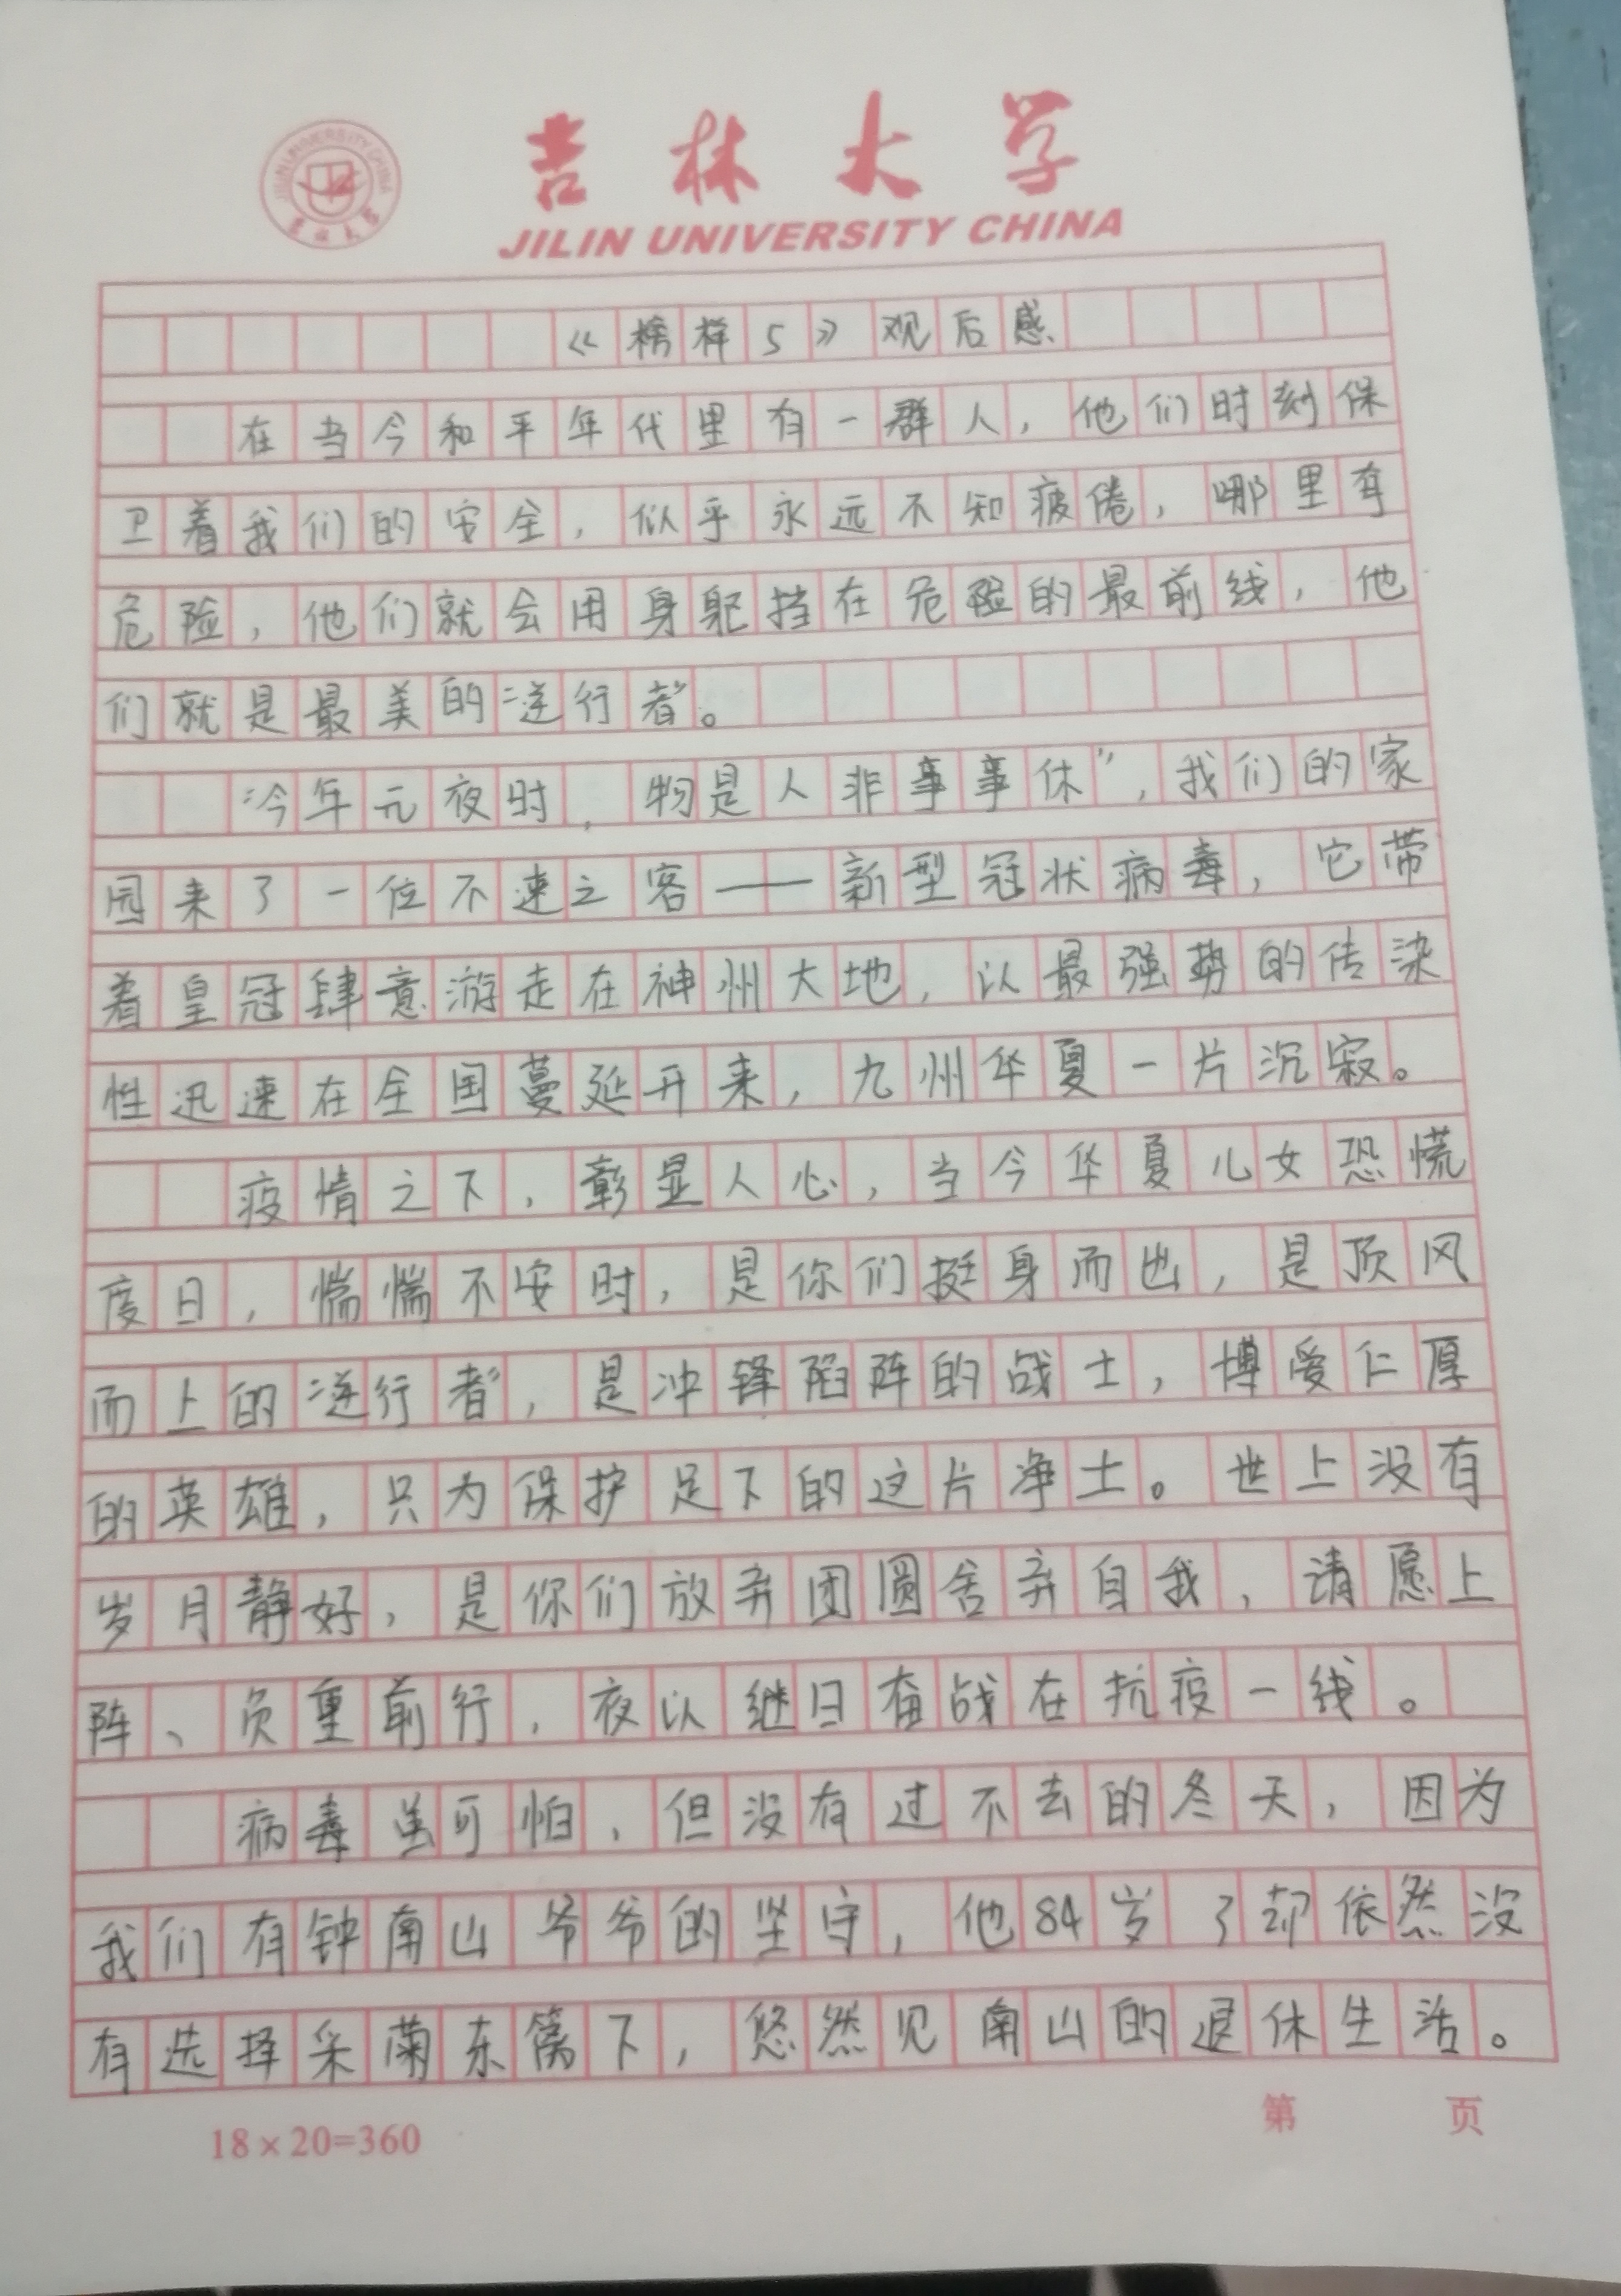 吉林大学
JILIN UNIVERSITY CHINA
《榜样5》观后感
在当今和平年代里有一群人，他们时刻保
卫着我们的安全，似乎永远不知疲倦，哪里有
危险，他们就会用身躯挡在危险的最前线，他
们就是最美的“逆行者”。
“今年元夜时，物是人非事事休”，我们的家
园来了一位不速之客——新型冠状病毒，它带
着皇冠肆意游走在神州大地，以最强势的传染
性迅速在全国蔓延开来，九州华夏一片沉寂。
疫情之下，彰显人心，当今华夏儿女恐慌
度日，惴惴不安时，是你们挺身而出，是顶风
而上的“逆行者”，是冲锋陷阵的战士，博爱仁厚
的英雄，只为保护足下的这片净土。世上没有
岁月静好，是你们放弃团圆舍弃自我，请愿上
阵、负重前行，夜以继日奋战在抗疫一线。
病毒虽可怕，但没有过不去的冬天，因为
我们有钟南山爷爷的坚守，他84岁了却依然没
有选择采菊东篱下，悠然见南山的退休生活。
18×20=360
第 页